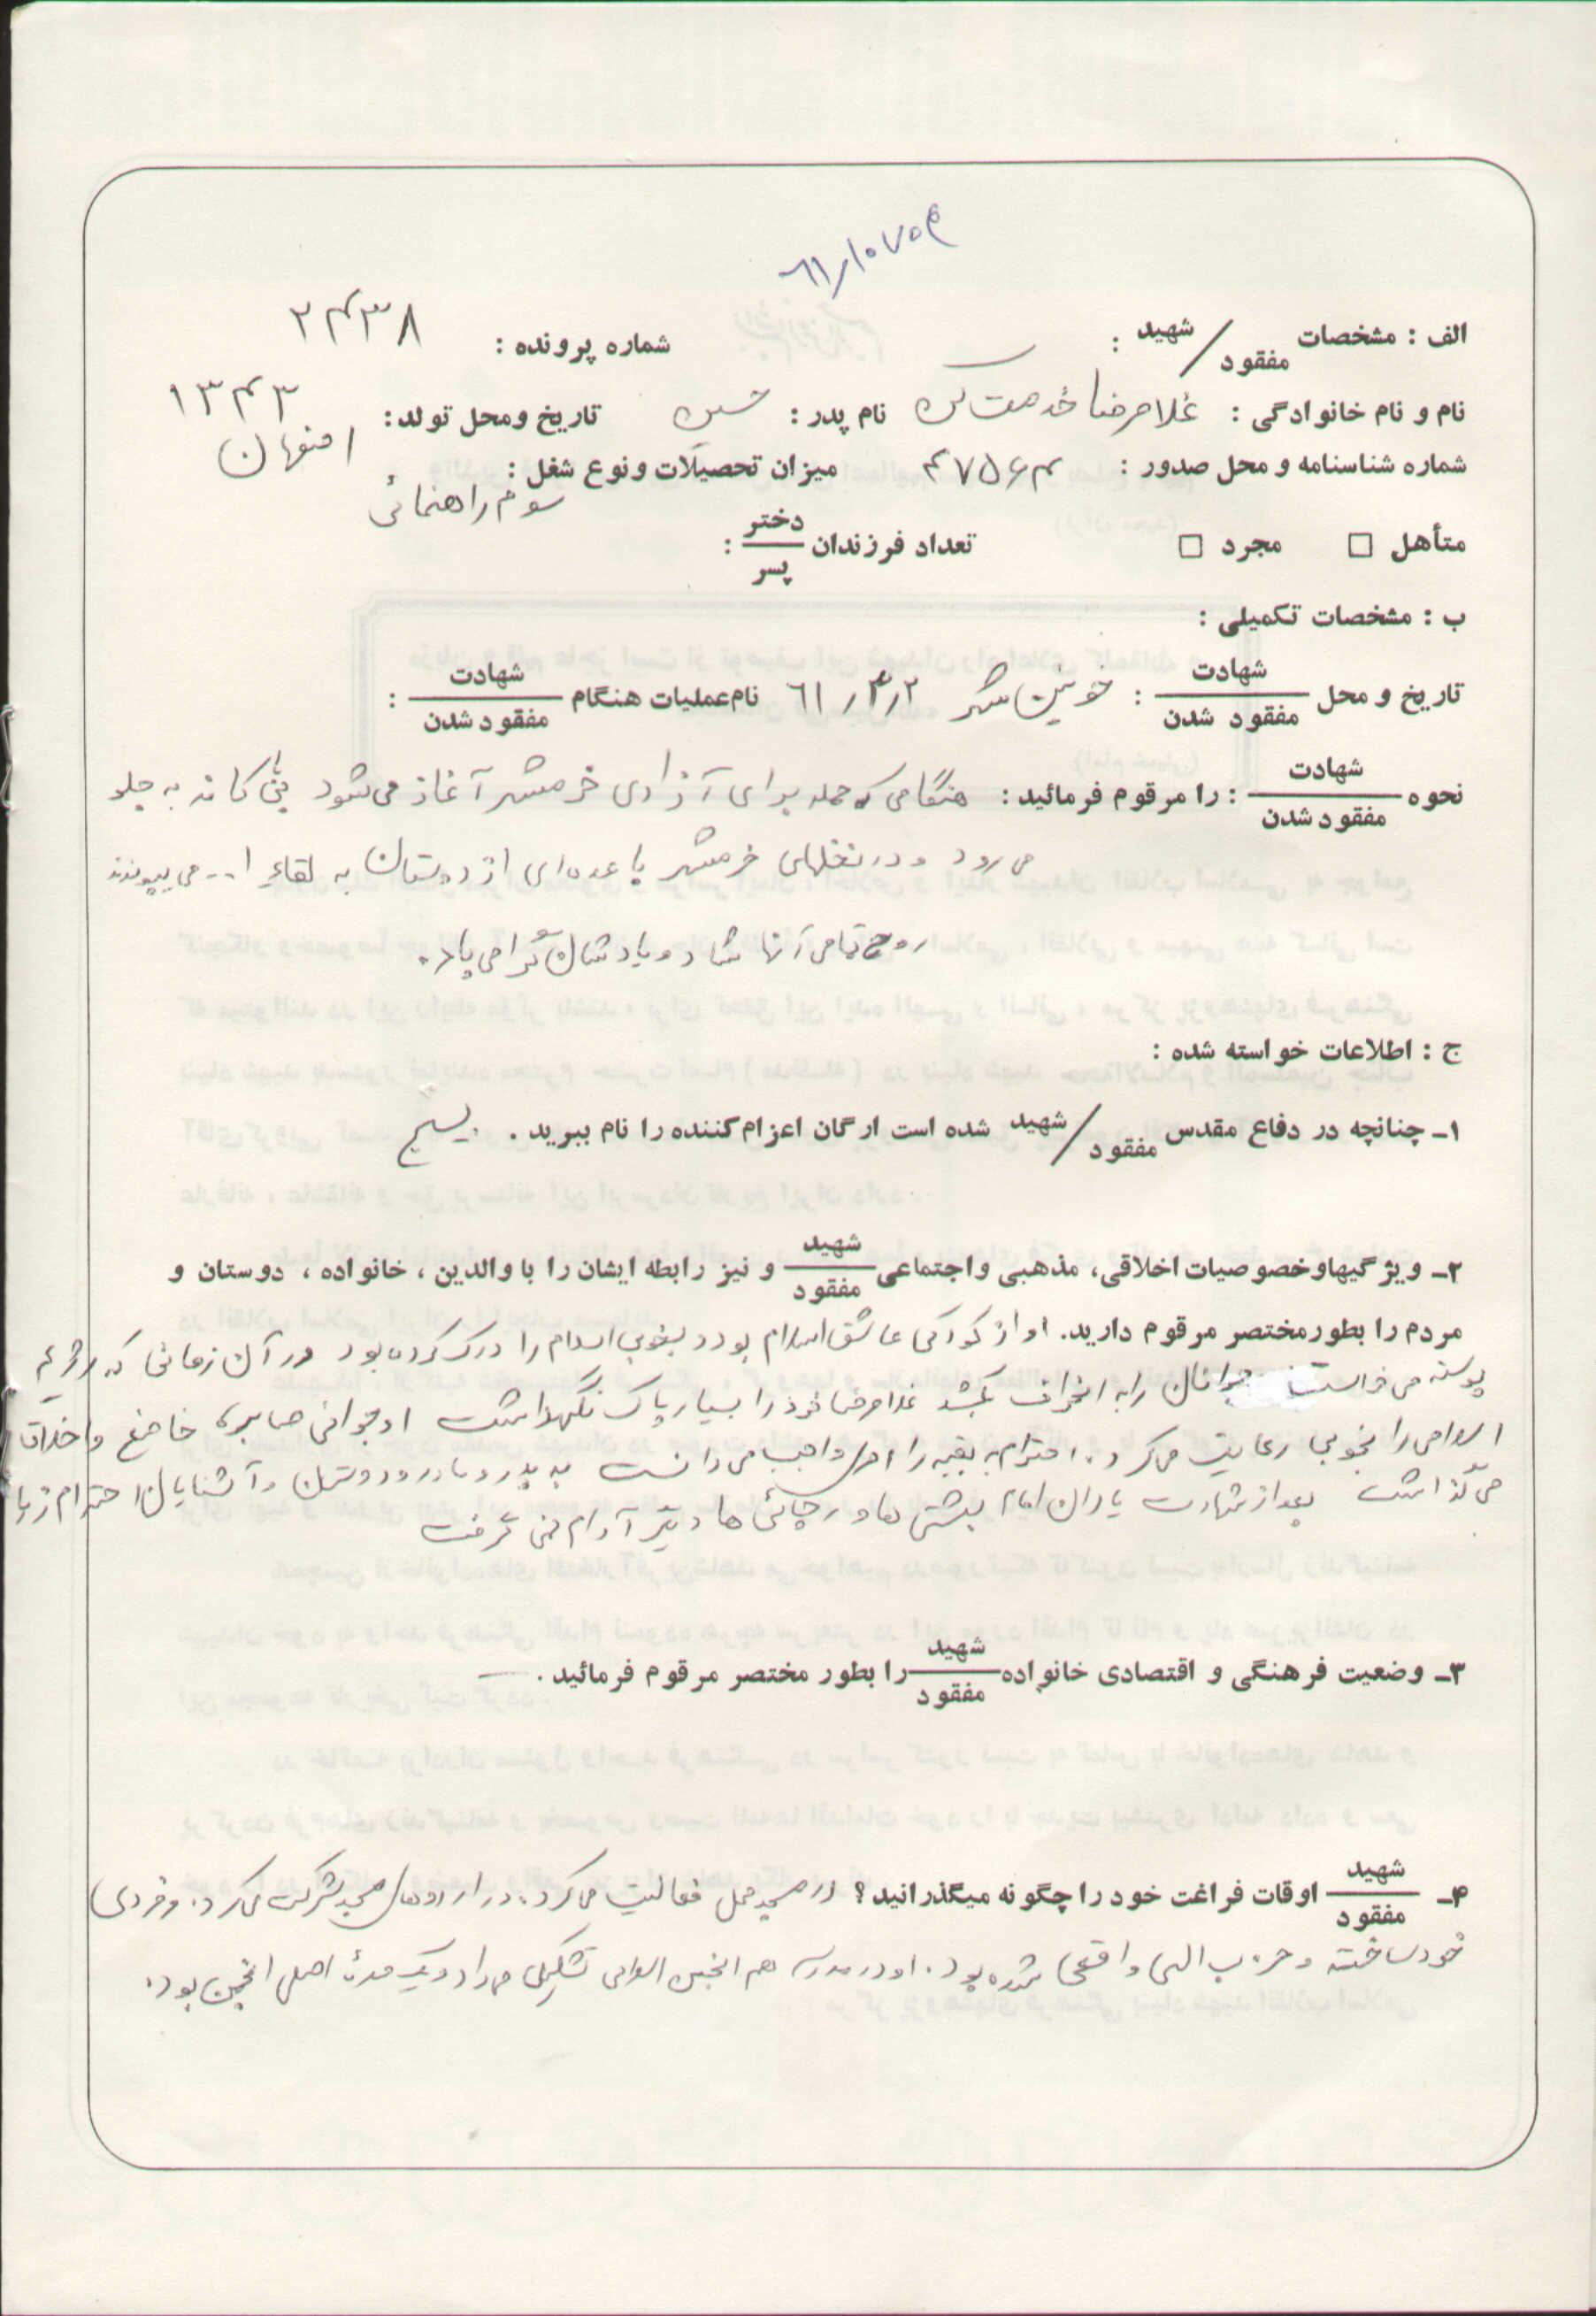 ۶۱/۱۰۷۰۹
الف : مشخصات شهید/مفقود :
شماره پرونده : ۲۴۳۸
نام و نام خانوادگی : غلامرضا خدمت کن نام پدر : حسین تاریخ ومحل تولد : ۱۳۴۳ اصفهان
شماره شناسنامه و محل صدور : ۴۷۵۶۴ میزان تحصیلات ونوع شغل : سوم راهنمائی
متأهل □ مجرد □ تعداد فرزندان دختر/پسر :
ب : مشخصات تکمیلی :
تاریخ و محل شهادت/مفقود شدن : خونین شهر ۶۱/۳/۲ نام عملیات هنگام شهادت/مفقود شدن :
نحوه شهادت/مفقود شدن : را مرقوم فرمائید : هنگامی که حمله برای آزادی خرمشهر آغاز می‌شود بی‌باکانه به جلو
می‌رود و در نخلهای خرمشهر با عده‌ای از دوستان به لقاء ا... می‌پیوندند
روح تمامی آنها شاد و یادشان گرامی باد.
ج : اطلاعات خواسته شده :
۱ـ چنانچه در دفاع مقدس شهید/مفقود شده است ارگان اعزام‌کننده را نام ببرید . بسیج
۲ـ ویژگیهاوخصوصیات اخلاقی، مذهبی واجتماعی شهید/مفقود و نیز رابطه ایشان را با والدین ، خانواده ، دوستان و
مردم را بطور مختصر مرقوم دارید. او از کودکی عاشق اسلام بود و بخوبی اسلام را درک کرده بود در آن زمانی که رژیم
پیوسته می‌خواست جوانان را به انحراف بکشد غلامرضا خود را بسیار پاک نگهداشت او جوانی صابر، خاضع و اخلاق
اسلامی را بخوبی رعایت می‌کرد. احترام به بقیه را واجب می‌دانست به پدر و مادر و دوستان و آشنایان احترام زیاد
می‌گذاشت بعد از شهادت یاران امام بهشتی‌ها و رجائی‌ها دیگر آرام نمی‌گرفت
۳ـ وضعیت فرهنگی و اقتصادی خانواده شهید/مفقود را بطور مختصر مرقوم فرمائید . —
۴ـ شهید/مفقود اوقات فراغت خود را چگونه میگذرانید ؟ در مسجد محل فعالیت می‌کرد. در اردوهای مسجد شرکت می‌کرد. و فردی
خود ساخته و حزب الهی واقعی شده بود. او در مدرسه هم انجمن اسلامی تشکیل داد و یک مهرهٔ اصلی انجمن بود.